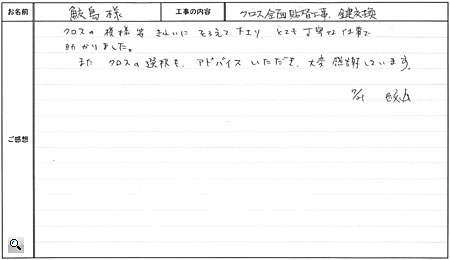 お名前 鮫島様 工事の内容 クロス全面貼替工事、鍵交換
クロスの模様等きれいにそろえて下さり とても丁寧な仕事で
助かりました。
また クロスの選択も、アドバイスいただき、大変感謝しています。
7/21
ご感想